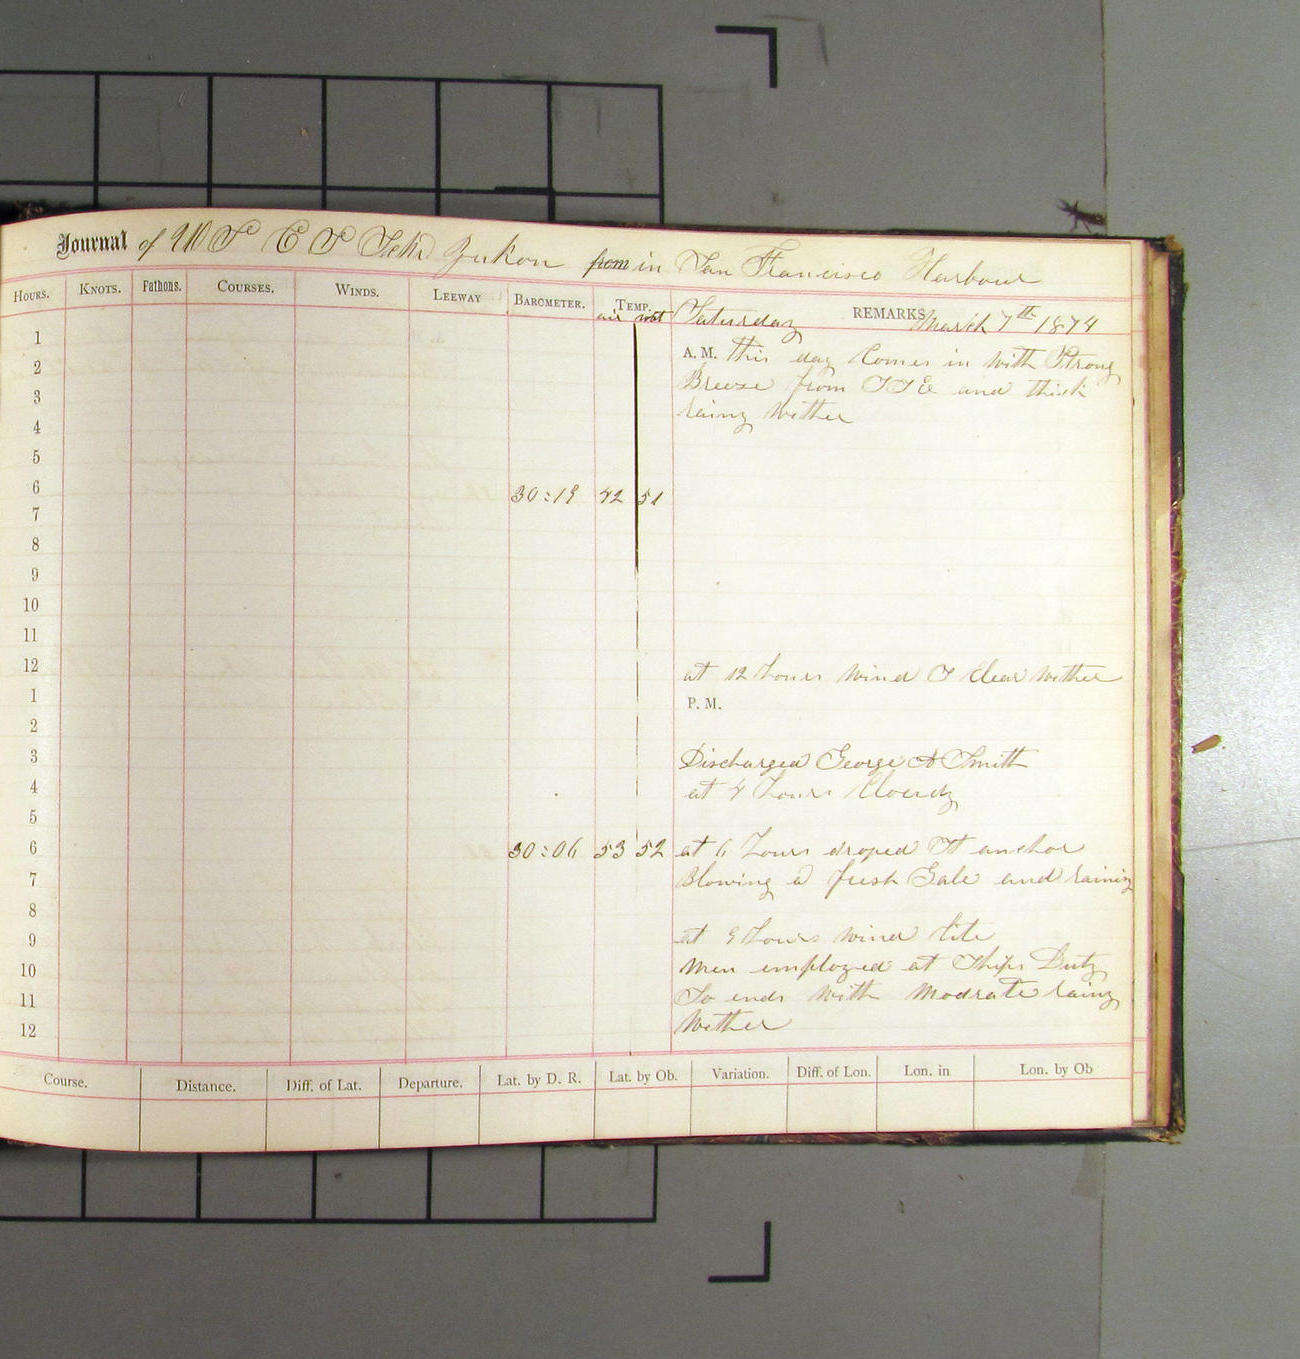 Journal of U S C S Schr Yukon from in San Francisco Harbour
Hours. Knots. Fathoms. Courses. Winds. Leeway Barometer. Temp. REMARKS.
air wat Saturday March 7th 1874
1
A. M. This day Comes in with Strong
2
Breeze from SSE and thick
3
rainy wether
4
5
6 30:19 42 51
7
8
9
10
11
12 at 12 hours wind S Clear wether
1 P. M.
2
3 Discharged George A Smith
4 at 4 hours Cloudy
5
6 30:06 53 52 at 6 hours droped St anchor
7 Blowing a fresh Gale and rainig
8
9 at 9 hours wind lite
10 men employed at Ships Duty
11 So ends with modrate rainy
12 wether
Course. Distance. Diff. of Lat. Departure. Lat. by D. R. Lat. by Ob. Variation. Diff. of Lon. Lon. in Lon. by Ob